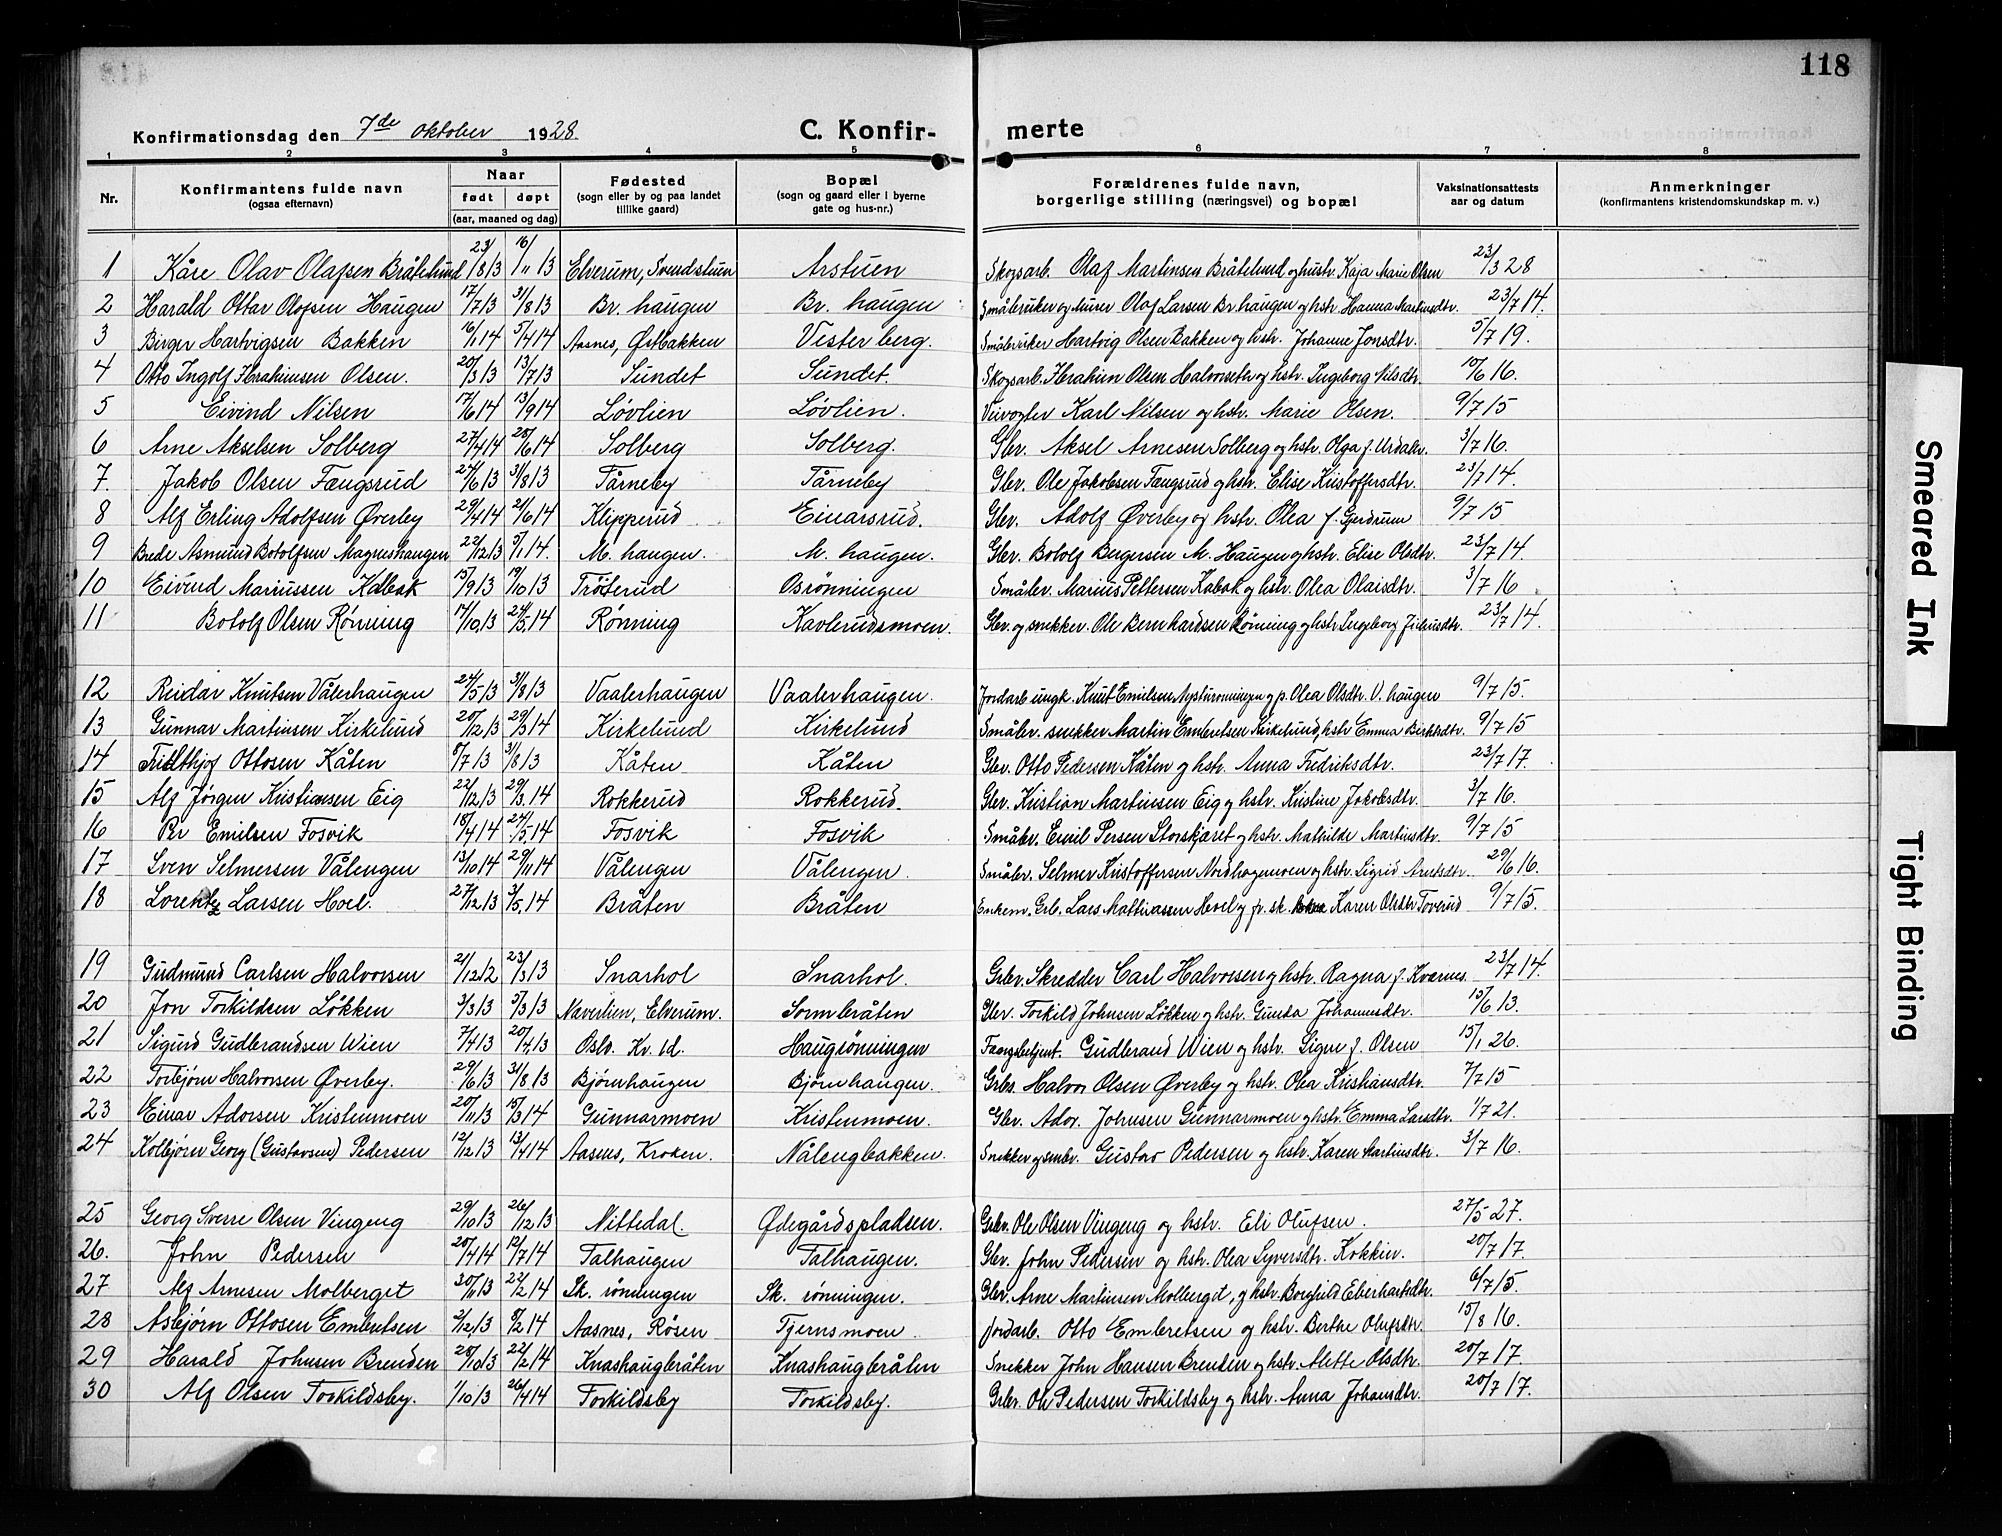 118
Konfirmationsdag den 7de oktober 1928.
C. Konfirmerte
1 2 3 4 5 6 7 8
Nr. Konfirmantens fulde navn (ogsaa efternavn) Naar født døpt (aar, maaned og dag) Fødested (sogn eller by og paa landet tillike gaard) Bopæl (sogn og gaard eller i byerne gate og hus-nr.) Forældrenes fulde navn, borgerlige stilling (næringsvei) og bopæl Vaksinationsattests aar og datum Anmerkninger (konfirmantens kristendomskundskap m. v.)
1 Kåre Olav Olafsen Bråtelund 23/8 13 16/11 13 Elverum, Svendstuen Arstuen Skogsarb. Olaf Martinsen Bråtelund og hustr. Kaja Marie Olsen 23/3 28
2 Harald Ottar Olofsen Haugen 17/7 13 31/8 13 Br. haugen Br. haugen Småbruker og murer Olof Larsen Br. haugen og hstr. Hanna Martinsdtr. 23/7 14.
3 Birger Hartvigsen Bakken 16/1 14 5/4 14 Aasnes, Østbakken Vesterberg. Småbruker Hartvig Olsen Bakken og hstr. Johanne Jonsdtr. 5/7 19.
4 Otto Ingolf Hrahimsen Olsen. 20/3 13 13/7 13 Sundet Sundet. Skogsarb. Hrahim Olsen Halvorsetr og hstr. Ingeborg Nilsdtr. 10/6 16.
5 Eivind Nilsen 17/6 14 13/9 14 Løvlien Løvlien. Veivogter Karl Nilsen og hstr. Marie Olsen. 9/7 15
6 Arne Akselsen Solberg 27/4 14 20/6 14 Solberg Solberg. Gbr. Aksel Arnesen Solberg og hstr. Olga f. Urdahl. 3/7 16.
7. Jakob Olsen Fængsrud 24/6 13 31/8 13 Tårneby Tårneby Gbr. Ole Jakobsen Fængsrud og hstr. Elise Kristoffersdtr. 23/7 14.
8 Alf Erling Adolfsen Øverby 29/4 14 21/6 14 Klipperud Einarsrud. Gbr. Adolf Øverby og hstr. Olea f. Gjerdrum 9/7 15
9 Brede Asmund Botolfsen Magneshaugen 22/12 13 5/1 14. M. haugen. M. haugen. Gbr. Botolf Bergersen M. Haugen og hstr. Elise Olsdtr. 23/7 14.
10 Eivind Mariussen Kabak 15/9 13 19/10 13 Trøterud Osrønningen Småbr. Marius Pettersen Kabak og hstr. Olea Olaisdtr. 3/7 16
11 Botolf Olsen Rønning 17/10 13 24/5 14 Rønning Kavlerudsmoen. Gbr. og snekker. Ole Bernhardsen Rønning og hstr. Ingeborg 23/7 14.
12 Reidar Knutsen Vålerhaugen 24/5 13 31/8 13 Vaalerhaugen Vaalerhaugen. Jordarb. ungk. Knut Emilsen og p. Olea Olsdtr. V. haugen 9/7 15.
13 Gunnar Martinsen Kirkelund 20/12 13 29/3 14 Kirkelund Kirkelund Småbr. snekker Martin Embretsen Kirkelund, hstr. Emma Berthsdtr. 9/7 15
14 Fridthjof Ottosen Kåten 8/7 13 31/8 13 Kåten Kåten Gbr. Otto Pedersen Kåten og hstr. Anna Fredriksdtr. 23/7 17.
15 Alf Jørgen Kristiansen Eig 22/12 13 29/3. 14 Rokkerud Rokkerud. Gbr. Kristian Martinsen Eig og hstr. Kristine Jakobsdtr. 3/7 16.
16 Per Emilsen Fosvik 18/4 14 24/5 14 Fosvik Fosvik Småbr. Emil Persen Storskjæret og hstr. Mathilde Martinsdtr. 9/7 15
17 Sven Selmersen Vålengen 13/10 14 29/11 14 Vålengen Vålengen. Småbr. Selmer Kristoffersen Nordhagemoen og hstr. Sigrid Arntsdtr. 29/6 16.
18 Lorentz Larsen Hoel. 27/12 13 3/5. 14 Bråten Bråten Enkem. Grb. Lars Mathiassen Hoel og fr. sk. Karen Olsdtr Toverud 9/7 15.
19 Gudmund Carlsen Halvorsen 21/12 12 23/3 13 Snarhol Snarhol. Grbr. Skredder Carl Halvorsen og hstr. Ragna f. Kværnes. 23/7 14.
20 Jon Torkildsen Løkken 3/3 13 5/3 13 Næverlien, Elverum. Sormbråten Gbr. Torkild Johnsen Løkken og hstr. Gunda Johannesdtr. 15/6 13.
21 Sigurd Gudbrandsen Wien 7/4 13 20/4 13 Oslo. Kv. id. Haugrønningen Fangebetjent. Gudbrand Wien og hstr. Signe f. Olsen 15/1 26.
22 Torbjørn Halvorsen Øverby. 29/6 13 31/8 13 Bjørnhaugen Bjørnhaugen. Grbr. Halvor Olsen Øverby og hstr. Olea Kristiansdtr. 7/7 15
23 Einar Adorsen Kristenmoen 20/11 13 15/3 14 Gunnarmoen Kristenmoen. Gbr. Ador. Johnsen Gunnarmoen og hstr. Emma Larsdtr. 1/7 21.
24 Kolbjørn Georg (Gustavsen) Pedersen 12/12 13 13/4 14 Aasnes, Kroken. Nålengbakken. Snekker og småbr. Gustav Pedersen og hstr. Karen Martinsdtr. 3/7 16.
25 Georg Sverre Olsen Vingeng 29/10 13 26/12 13 Nittedal. Ødegårdspladsen. Grbr. Ole Olsen Vingeng og hstr. Eli Olufsen. 27/5 27.
26. John Pedersen 20/4 14 12/7 14 Talhaugen Talhaugen. Gbr. John Pedersen og hstr. Olea Syversdtr. Kokkin. 20/7 17.
27 Alf Arnesen Molberget 30/11 13 22/2 14 Sk. rønningen Sk. rønningen. Gbr. Arne Martinsen Molberget, og hstr. Borghild Eberhartsdtr. 6/7 15.
28 Asbjørn Ottosen Embretsen 2/12 13 8/2 14 Aasnes, Røsen Tjernsmoen Jordarb. Otto Embretsen og hstr. Berthe Olufsdtr. 15/8 16.
29 Harald Johnsen Brenden 20/10 13 22/2 14 Knashaugbråten Knashaugbråten Snekker John Hansen Brenden og hstr. Mette Olsdtr. 20/7 17.
30 Alf Olsen Torkildsby. 1/10 13 26/4 14 Torkildsby Torkildsby. Grbr. Ole Pedersen Torkildsby og hstr. Anna Johansdtr. 20/7 17.
Smeared Ink
Tight Binding